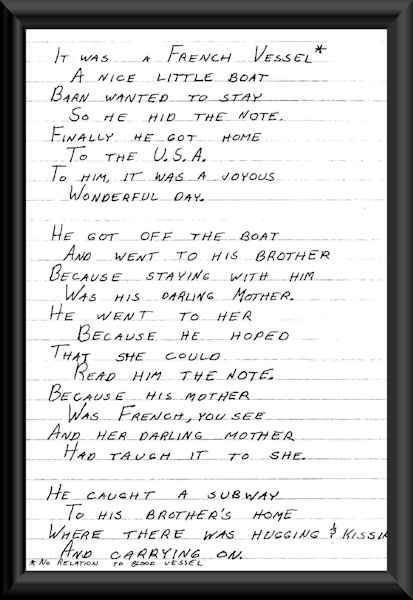 It was a French Vessel*
A nice little boat
Barn wanted to stay
So he hid the note.
Finally he got home
To the U.S.A.
To him, it was a joyous
Wonderful day.
He got off the boat
And went to his brother
Because staying with him
Was his darling Mother.
He went to her
Because he hoped
That she could
Read him the note.
Because his mother
Was French, you see
And her darling mother
Had taugh it to she.
He caught a subway
To his brother's home
Where there was hugging & kissin
And carrying on.
* No relation to blood vessel